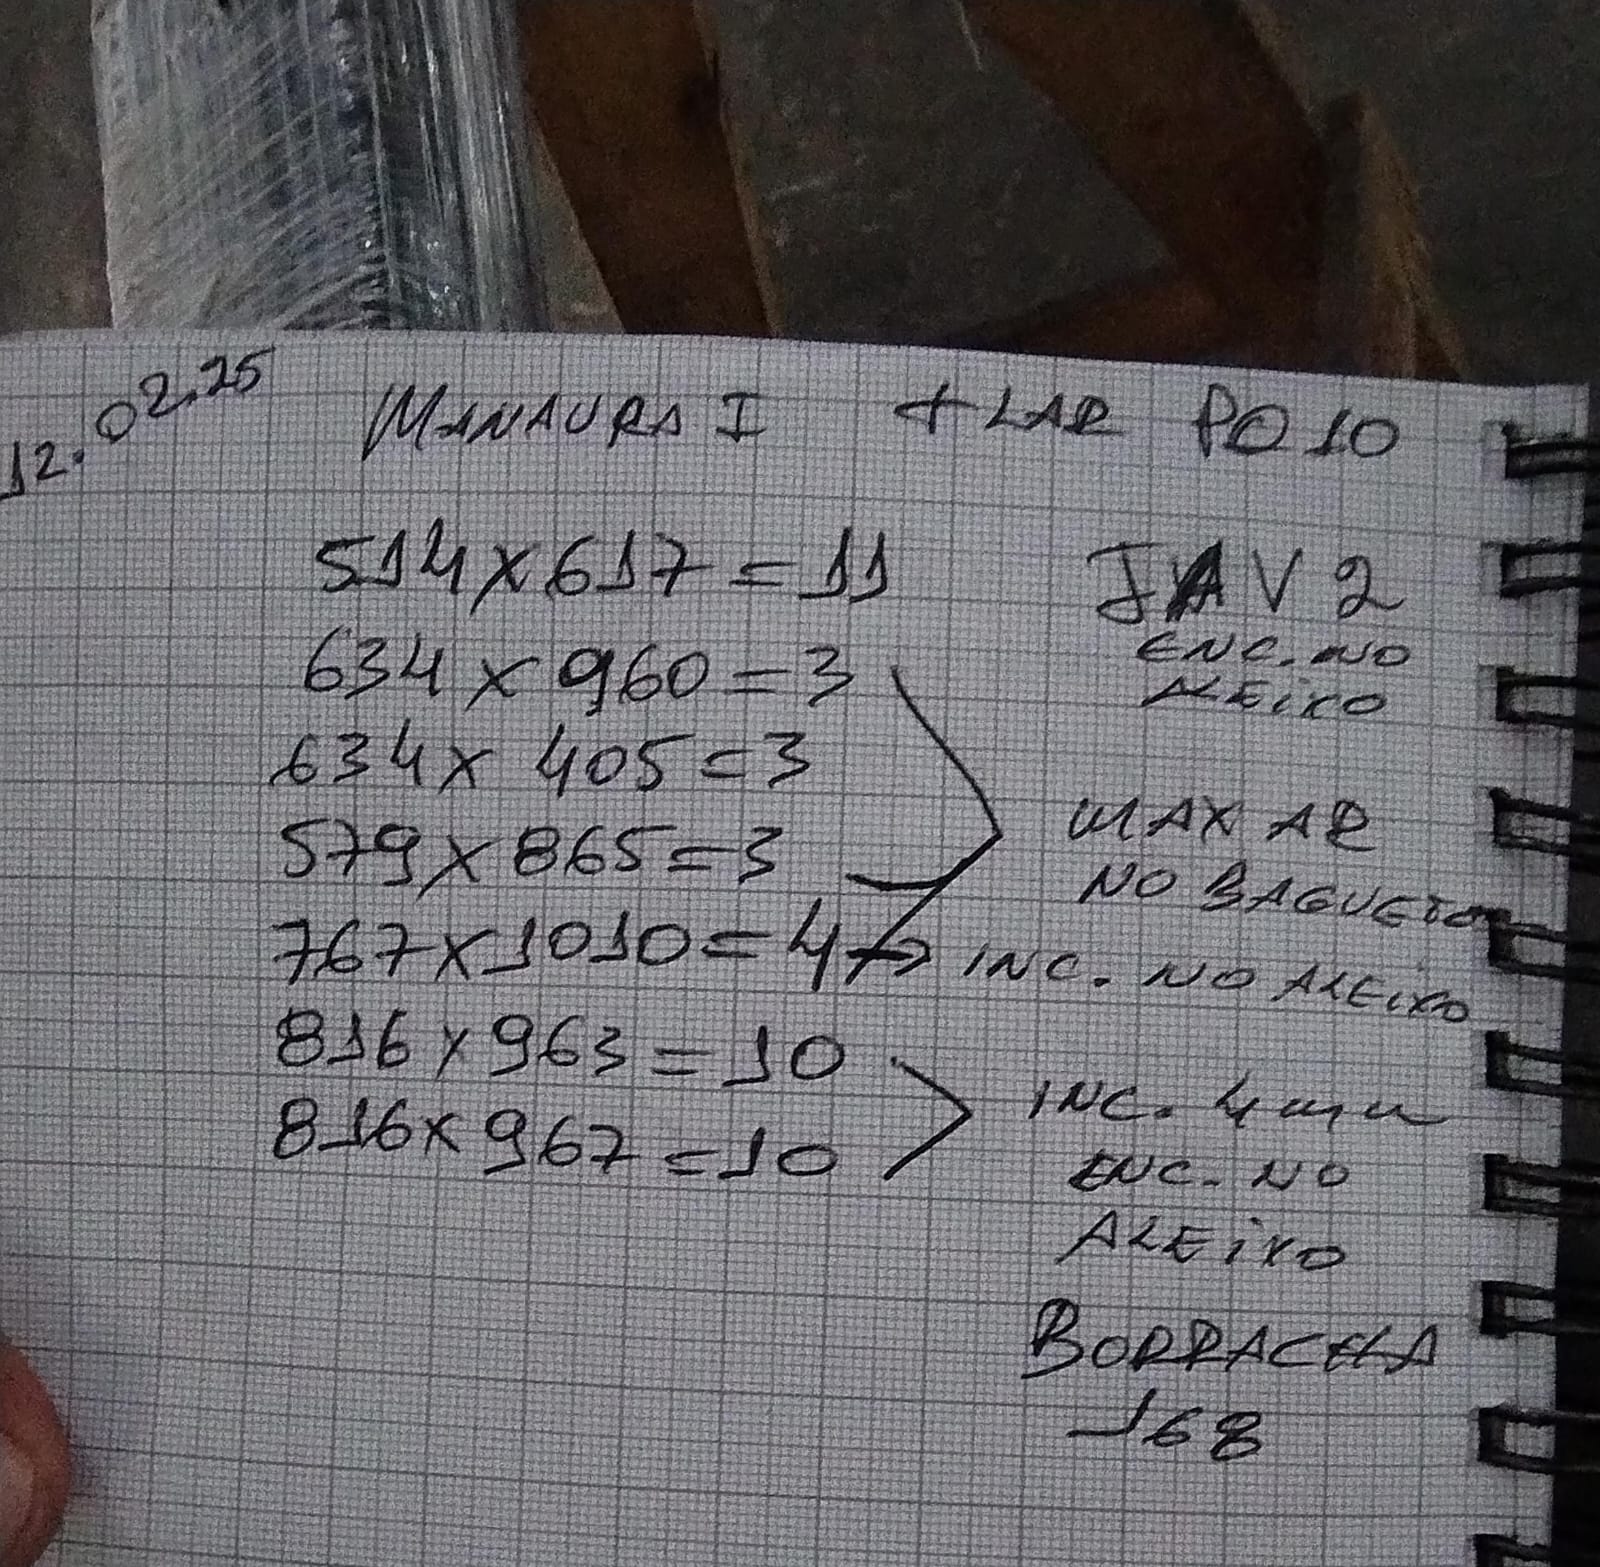 12.02.25
MANAURA I + LAR PO 10
514 x 617 = 11 JAV 2
ENC. NO
ALEIXO
634 x 960 = 3
634 x 405 = 3
579 x 865 = 3
MAX AR
NO BAGUETA
767 x 1010 = 4 → INC. NO ALEIXO
816 x 963 = 10
816 x 967 = 10
INC. 4mm
ENC. NO
ALEIXO
BORRACHA
168